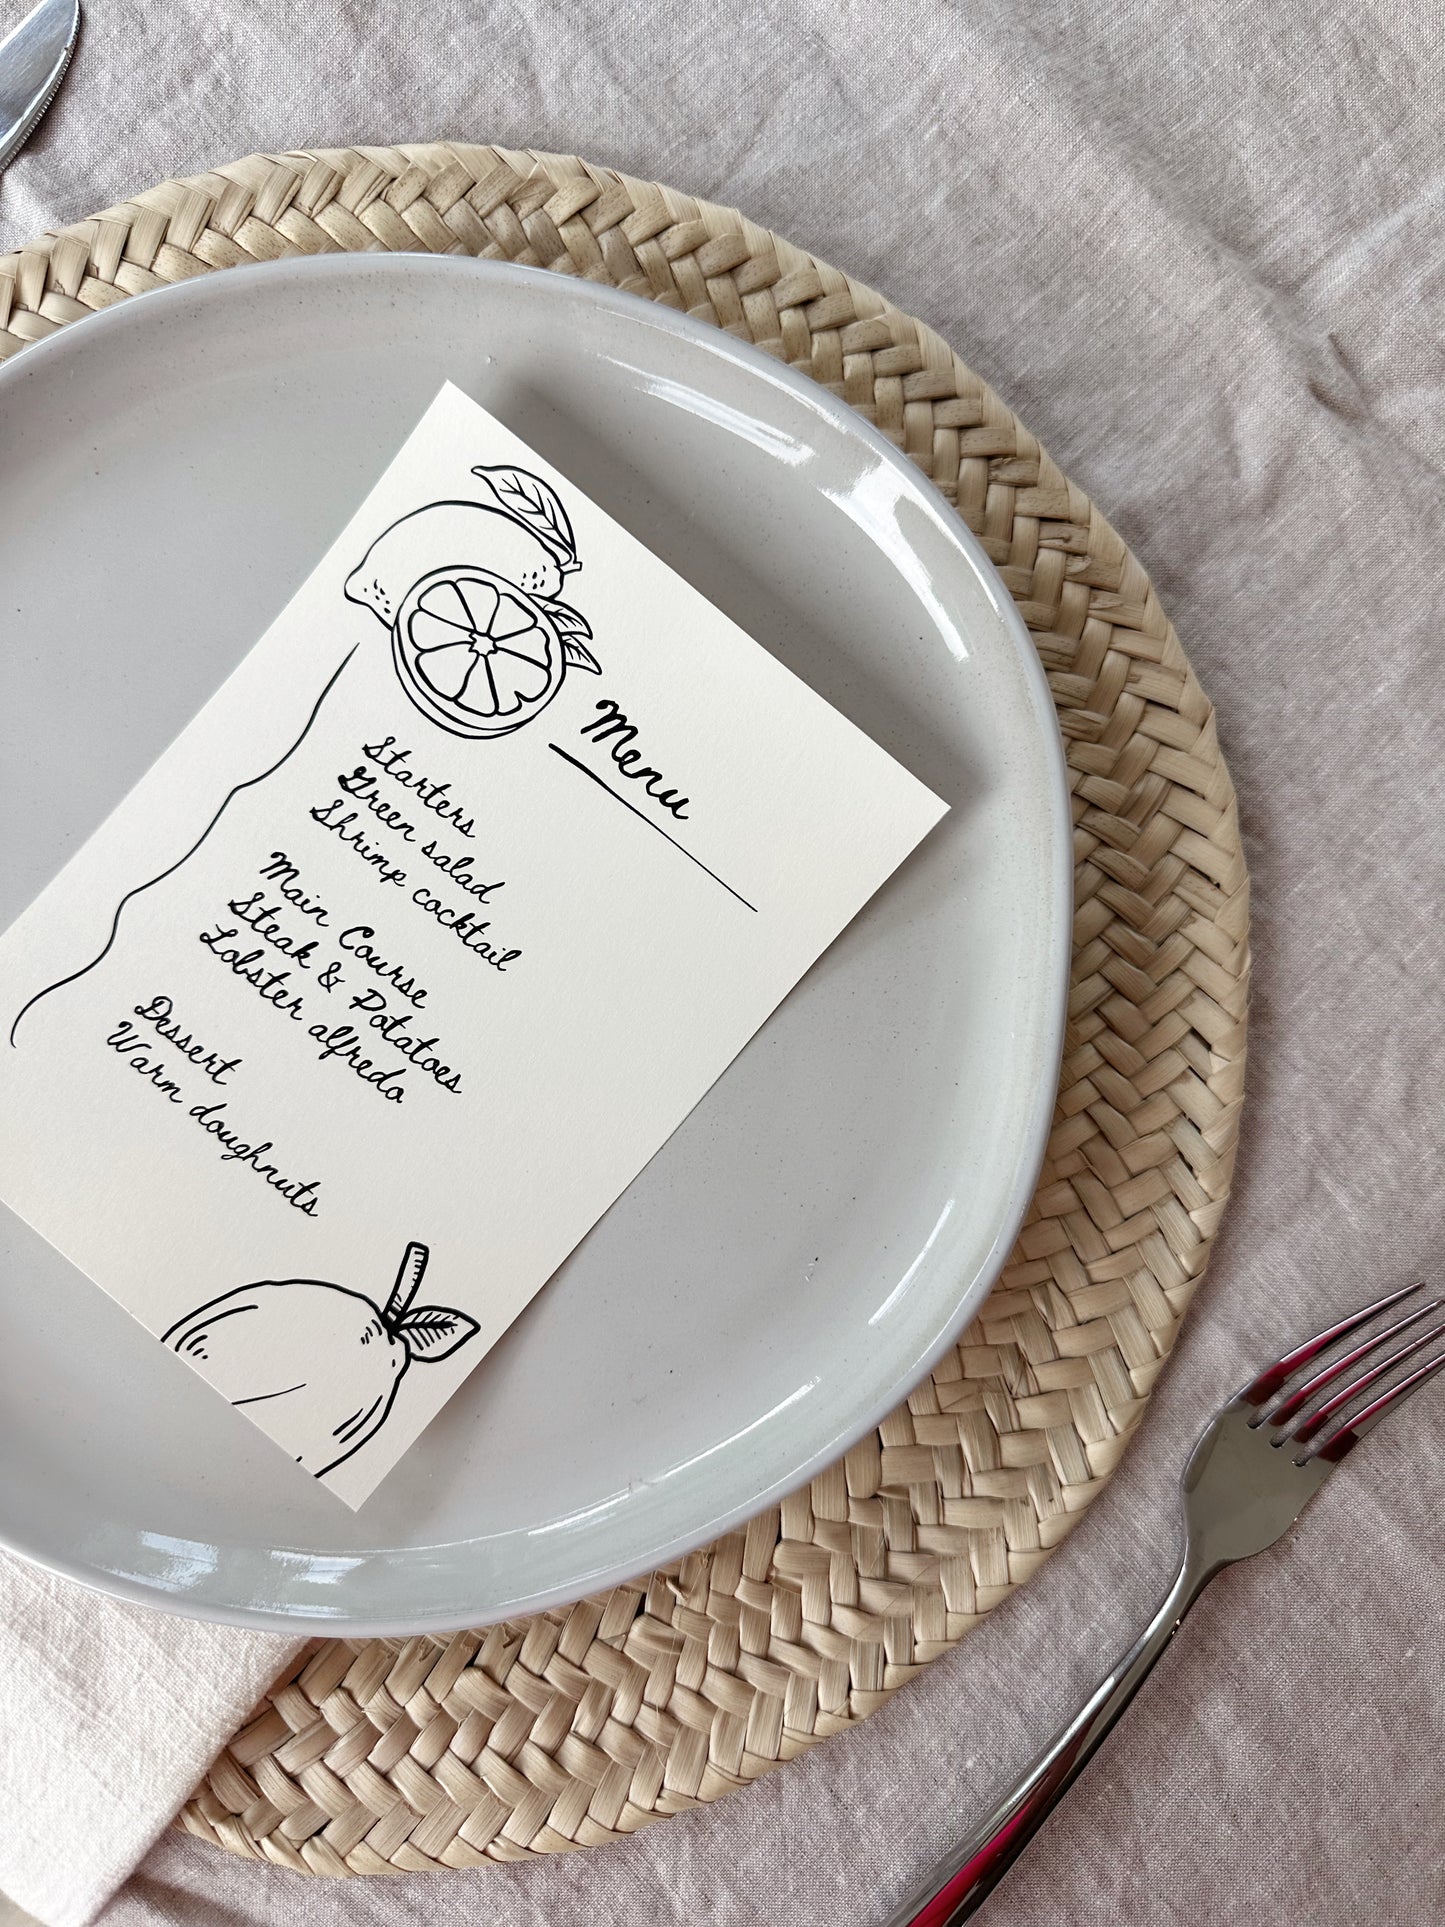 Menu
Starters
Green salad
Shrimp cocktail
Main Course
Steak & Potatoes
Lobster alfredo
Dessert
Warm doughnuts